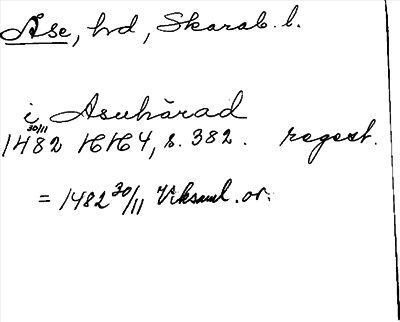 Åse, hd, Skarab. l.
i Asuhärad
30/11
1482 HH 4, s. 382. regest.
= 1482 30/11 Viksaml. or.